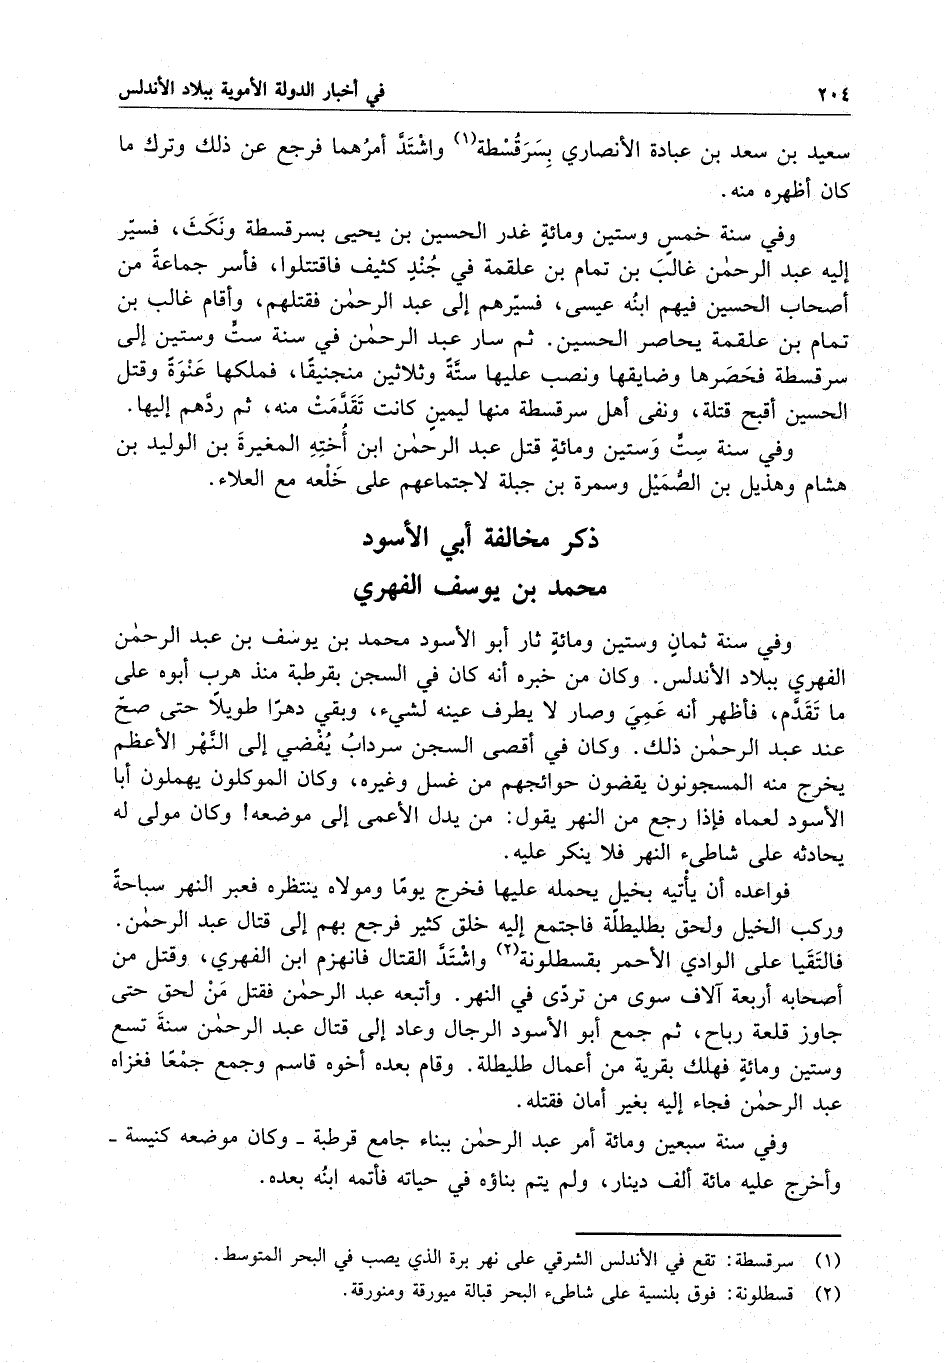 ٢٠٤ في أخبار الدولة الأموية ببلاد الأندلس
سعيد بن سعد بن عبادة الأنصاري بِسَرَقُسْطة(١) واشْتَدَّ أمرُهما فرجع عن ذلك وترك ما
كان أظهره منه.
وفي سنة خمسٍ وستين ومائةٍ غدر الحسين بن يحيى بسرقسطة ونَكَثَ، فسيّر
إليه عبد الرحمٰن غالبَ بن تمام بن علقمة في جُنْدٍ كثيف فاقتتلوا، فأسر جماعةً من
أصحاب الحسين فيهم ابنُه عيسى، فسيّرهم إلى عبد الرحمٰن فقتلهم، وأقام غالب بن
تمام بن علقمة يحاصر الحسين. ثم سار عبد الرحمٰن في سنة ستٍّ وستين إلى
سرقسطة فحَصَرها وضايقها ونصب عليها ستَّةً وثلاثين منجنيقًا، فملكها عَنْوَةً وقتل
الحسين أقبح قتلة، ونفى أهل سرقسطة منها ليمينٍ كانت تَقَدَّمَتْ منه، ثم ردَّهم إليها.
وفي سنة سِتٍّ وَستين ومائةٍ قتل عبد الرحمٰن ابن أُختِهِ المغيرةَ بن الوليد بن
هشام وهذيل بن الصُّمَيْل وسمرة بن جبلة لاجتماعهم على خَلْعه مع العلاء.
ذكر مخالفة أبي الأسود
محمد بن يوسف الفهري
وفي سنة ثمانٍ وستين ومائةٍ ثار أبو الأسود محمد بن يوسف بن عبد الرحمٰن
الفهري ببلاد الأندلس. وكان من خبره أنه كان في السجن بقرطبة منذ هرب أبوه على
ما تَقَدَّم، فأظهر أنه عَمِيَ وصار لا يطرف عينه لشيء، وبقي دهرًا طويلًا حتى صحّ
عند عبد الرحمٰن ذلك. وكان في أقصى السجن سردابُ يُفْضي إلى النَّهْر الأعظم
يخرج منه المسجونون يقضون حوائجهم من غسل وغيره، وكان الموكلون يهملون أبا
الأسود لعماه فإذا رجع من النهر يقول: من يدل الأعمى إلى موضعه! وكان مولى له
يحادثه على شاطىء النهر فلا ينكر عليه.
فواعده أن يأتيه بخيل يحمله عليها فخرج يومًا ومولاه ينتظره فعبر النهر سباحةً
وركب الخيل ولحق بطليطلة فاجتمع إليه خلق كثير فرجع بهم إلى قتال عبد الرحمٰن.
فالتَقَيا على الوادي الأحمر بقسطلونة(٢) واشْتَدَّ القتال فانهزم ابن الفهري، وقتل من
أصحابه أربعة آلاف سوى من تردّى في النهر. وأتبعه عبد الرحمٰن فقتل مَنْ لحق حتى
جاوز قلعة رباح، ثم جمع أبو الأسود الرجال وعاد إلى قتال عبد الرحمٰن سنةَ تسع
وستين ومائةٍ فهلك بقرية من أعمال طليطلة. وقام بعده أخوه قاسم وجمع جمْعًا فغزاه
عبد الرحمٰن فجاء إليه بغير أمان فقتله.
وفي سنة سبعين ومائة أمر عبد الرحمٰن ببناء جامع قرطبة ـ وكان موضعه كنيسة ـ
وأخرج عليه مائة ألف دينار، ولم يتم بناؤه في حياته فأتمه ابنُه بعده.
(١) سرقسطة: تقع في الأندلس الشرقي على نهر برة الذي يصب في البحر المتوسط.
(٢) قسطلونة: فوق بلنسية على شاطىء البحر قبالة ميورقة ومنورقة.